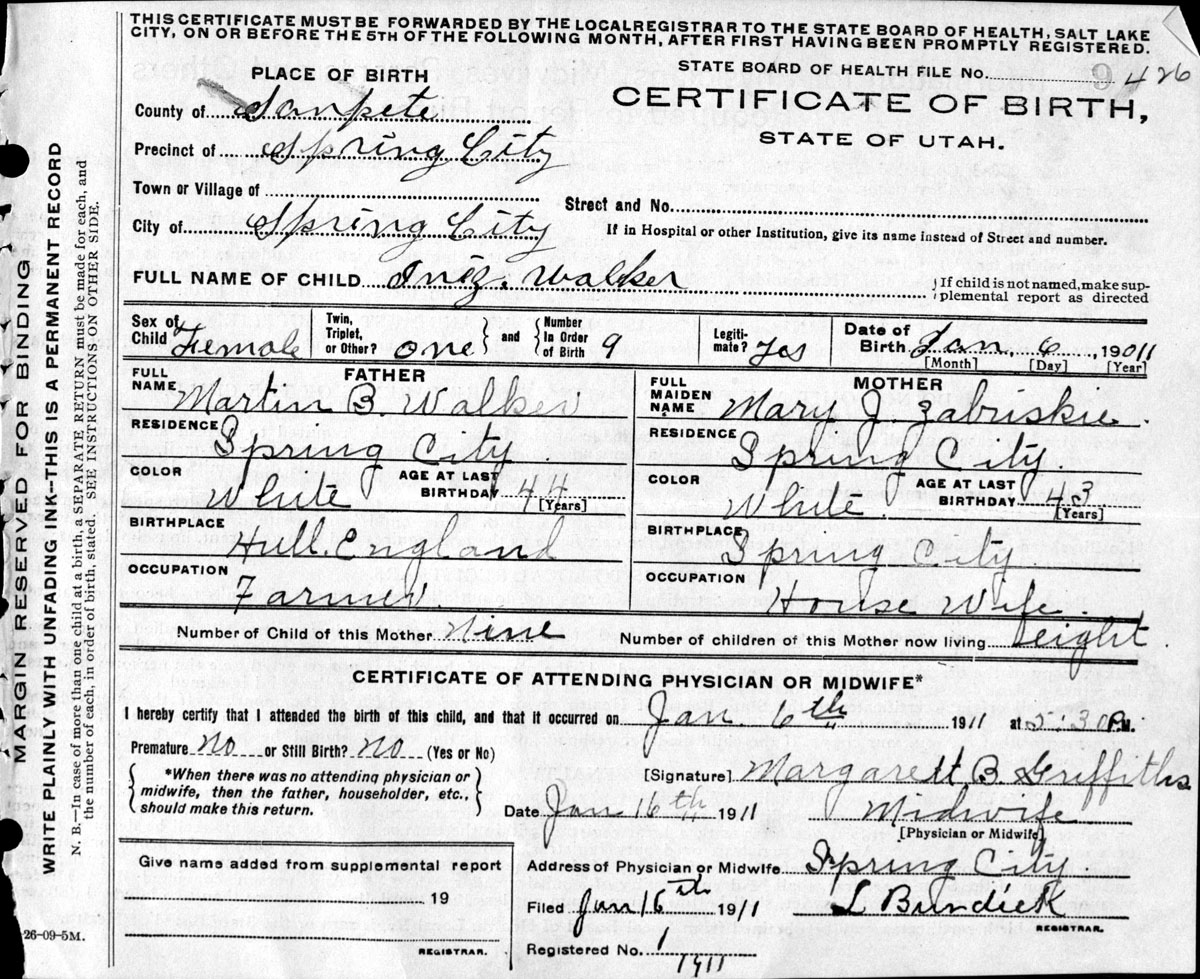 THIS CERTIFICATE MUST BE FORWARDED BY THE LOCALREGISTRAR TO THE STATE BOARD OF HEALTH, SALT LAKE
CITY, ON OR BEFORE THE 5TH OF THE FOLLOWING MONTH, AFTER FIRST HAVING BEEN PROMPTLY REGISTERED.
STATE BOARD OF HEALTH FILE NO. 9426
PLACE OF BIRTH
CERTIFICATE OF BIRTH,
STATE OF UTAH.
County of Sanpete
Precinct of Spring City
Town or Village of
Street and No.
City of Spring City
If in Hospital or other Institution, give its name instead of Street and number.
FULL NAME OF CHILD Iniz. Walker
If child is not named, make sup-
plemental report as directed
Sex of Child Female
Twin, Triplet, or Other? one
and
Number In Order of Birth 9
Legiti-mate? Yes
Date of Birth Jan. 6, 19011
[Month] [Day] [Year]
FATHER
FULL NAME Martin B. Walker
RESIDENCE Spring City
COLOR White
AGE AT LAST BIRTHDAY 44 [Years]
BIRTHPLACE Hull, England
OCCUPATION Farmer.
MOTHER
FULL MAIDEN NAME Mary J. Zabriskie.
RESIDENCE Spring City.
COLOR White.
AGE AT LAST BIRTHDAY 43 [Years]
BIRTHPLACE Spring City.
OCCUPATION House Wife.
Number of Child of this Mother Nine
Number of children of this Mother now living eight.
CERTIFICATE OF ATTENDING PHYSICIAN OR MIDWIFE*
I hereby certify that I attended the birth of this child, and that it occurred on Jan. 6th 1911 at 2:30 P.M.
Premature No or Still Birth? No (Yes or No)
*When there was no attending physician or
midwife, then the father, householder, etc.,
should make this return.
[Signature] Margarett B. Griffiths
Date Jan 16th 1911
Midwife
[Physician or Midwife]
Give name added from supplemental report
19
REGISTRAR.
Address of Physician or Midwife Spring City.
Filed Jan 16th 1911
L Burdick
REGISTRAR.
Registered No. 1
1911
26-09-5M.
MARGIN RESERVED FOR BINDING
WRITE PLAINLY WITH UNFADING INK--THIS IS A PERMANENT RECORD
N. B.—In case of more than one child at a birth, a SEPARATE RETURN must be made for each, and
the number of each, in order of birth, stated. SEE INSTRUCTIONS ON OTHER SIDE.